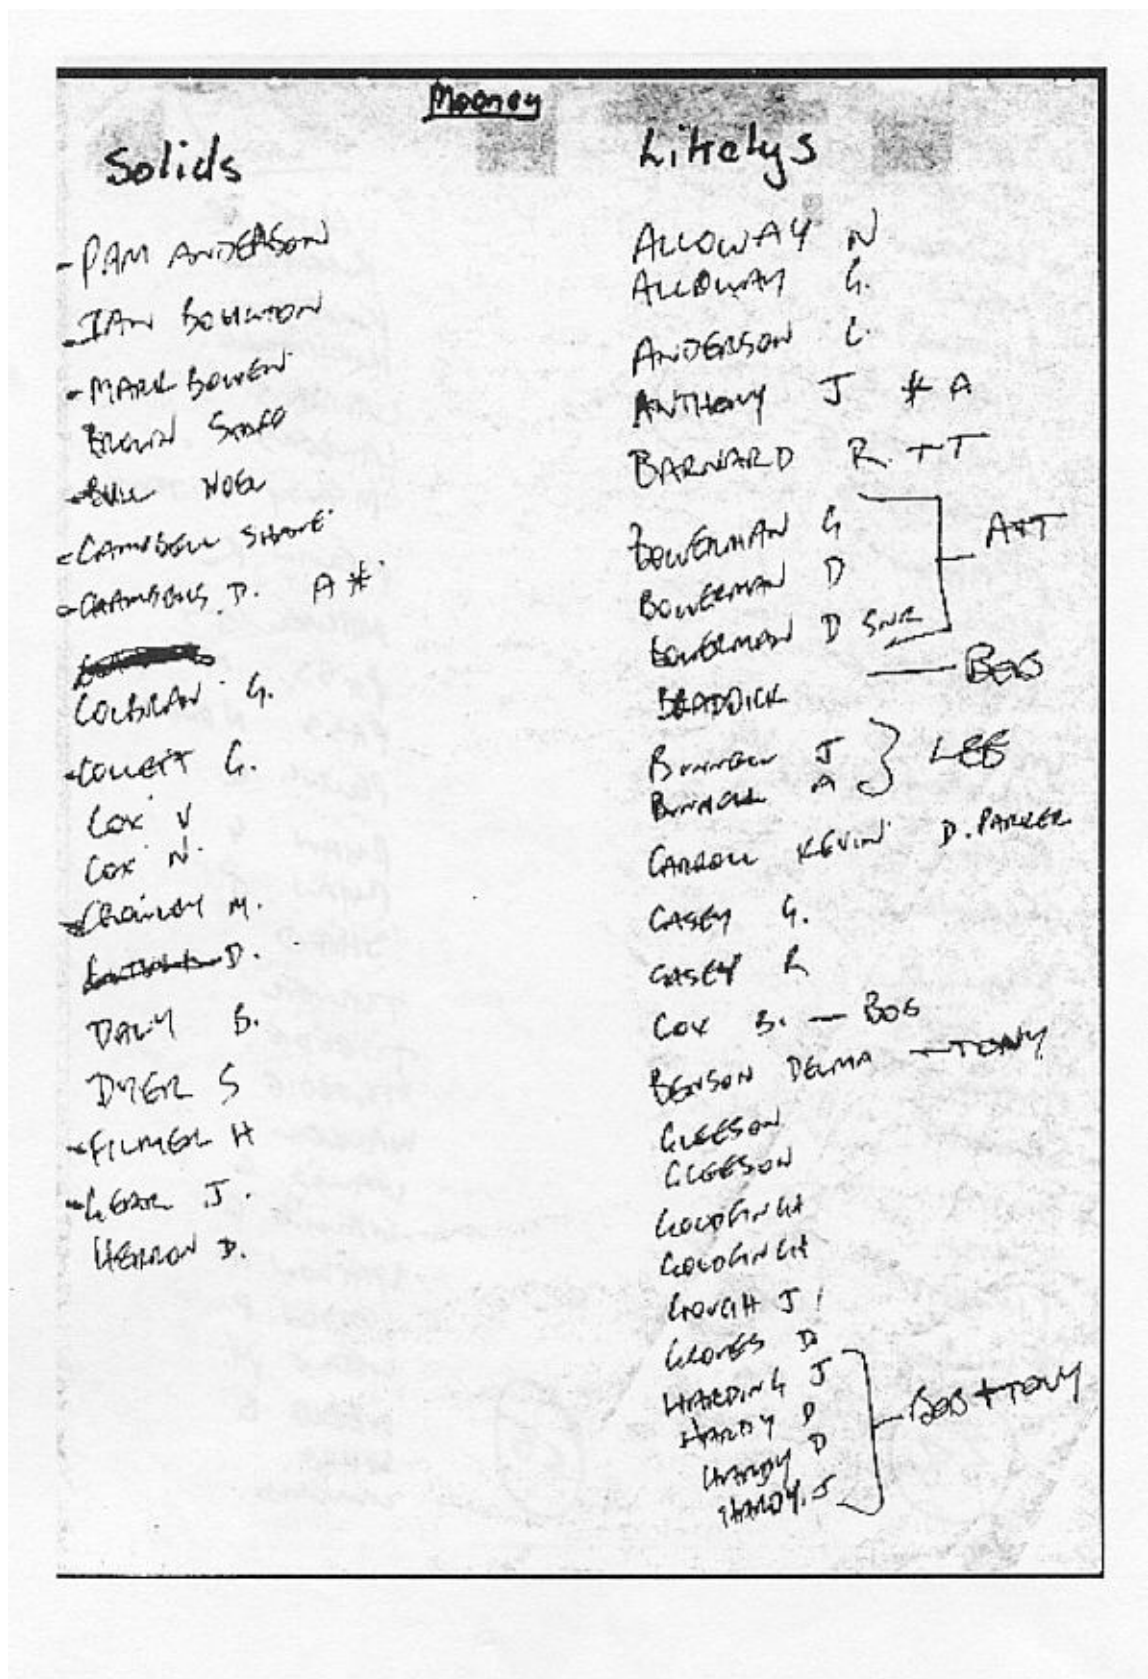 Mooney
Solids
- PAM ANDERSON
- IAN BOULTON
- MARK BOWEN
BROWN
- BULL NOEL
- CAMPBELL SHANE
- CHAMBERS D. A *
COLBRAN G.
- COLLETT G.
COX V
COX N.
- CROWLEY M.
D.
DALY B.
DYER S
- FILMER H
- GEAR J.
HERRON D.
Likelys
ALLOWAY N
ALLOWAY G.
ANDERSON L.
ANTHONY J * A
BARNARD R. - T
BOWERMAN G
BOWERMAN D
BOWERMAN D SNR
A+T
BRADDICK — BOB
BUNNELL J
BUNNELL A
} LEE
CARROLL KEVIN D. PARKER
CASEY G.
CASEY R
COX B. — BOB
BENSON DELMA — TONY
GLEESON
GLEESON
GOLDFINCH
GOLDFINCH
GOUGH J
GROVES D
HARDING J
HARDY D
HARDY D
HARDY. J
BOB + TONY